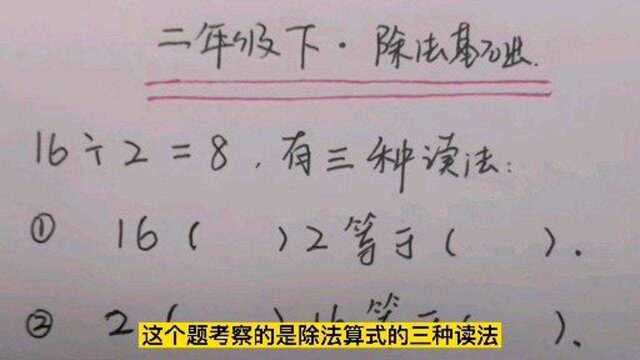 二年级下·除法基础
16÷2=8,有三种读法:
① 16 ( ) 2 等于 ( ).
② 2 ( ) 16 等于 ( ).
这个题考察的是除法算式的三种读法